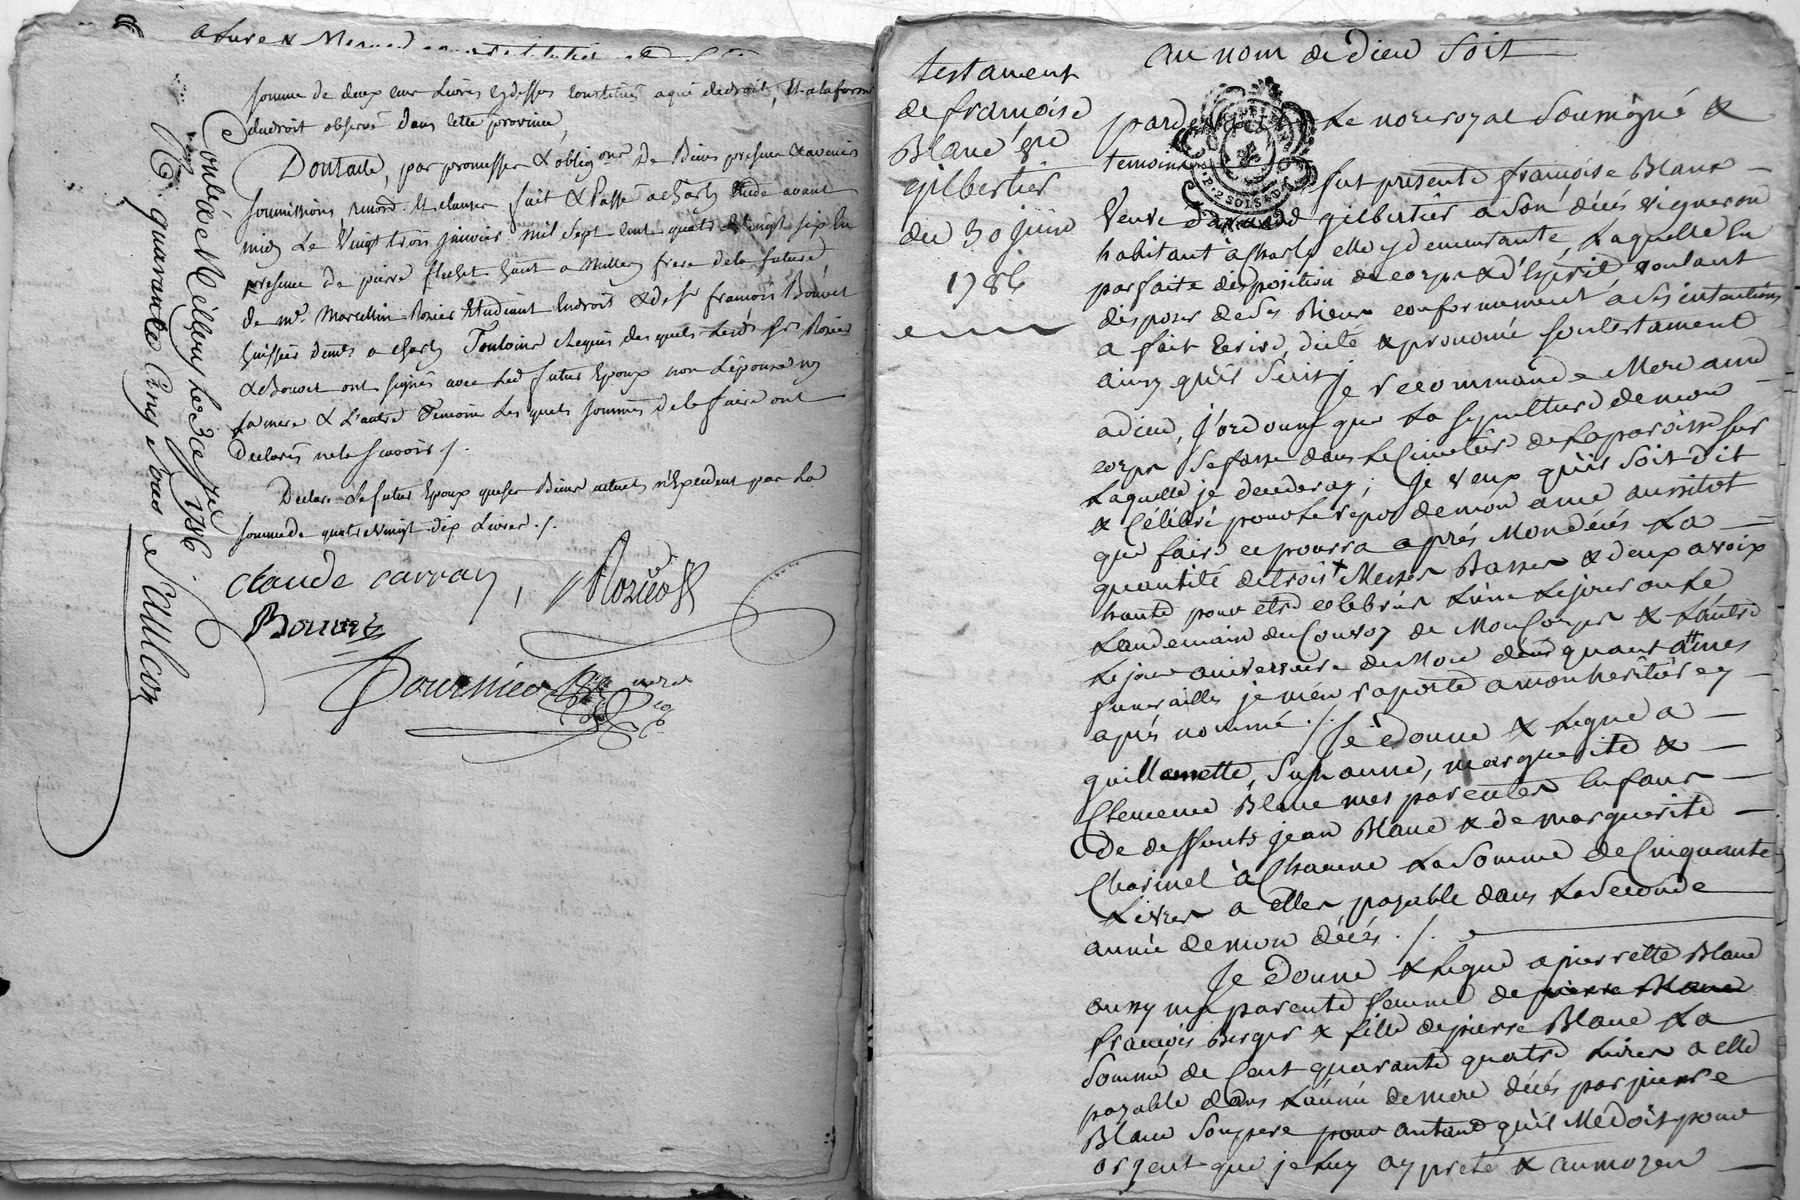 somme de deux cent Livres cydessus constitués a qui dedroit, Et a la forme
dudroit observé dans cette province,
Dontacte, par promesses & oblig.ons De Biens presents & avenir
soumissions, renond. Et clauses fait & Passé a charly Etude avant
midy Le Vingt trois janvier mil sept cent quatre Vingt six En
presence de pierre flechet à millery frere de la future
de m.e Marcellin Rozier Etudiant Endroit & de s.r francois Bouvet
huissier demt. a charly Temoins requis des quels Lesd. srs Rozier
& Bouvet ont signés avec Led. futur Epoux non L'épouse ny
La mere & L'autre Temoin Les quels sommés de le faire ont
Declarés ne le scavoir ./.
Declare Le futur Epoux que ses Biens actuels n'Excedent pas La
somme de quatre Vingt dix Livres ./.
claude carray, Rozier
Bouvet
Dournieu
Con.lé a Millery Le 30 1786
R. quarante Cinq sous
saulcon
testament
de francoise
Blanc
gilbertier
du 30 juin
1786
au nom de dieu soit
pardevant Le no.re royal Soussigné &
temoins fut presente francoise Blanc
Veuve gilbertier a son décés vigneron
habitant à Charly elle y demeurante, Laquelle En
parfaite disposition de corps & d'Esprit, voulant
disposer de ses Biens conformement a ses intentions
a fait Ecrire dicté & prononcé son testament
ainsy qu'il suit, Je recommande Mon ame
a dieu, j'ordonne que La sepulture de mon
corps Se fasse dans Le Cimetiere de La paroisse sur
Laquelle je decederay; Je veux qu'il soit dit
& Célébré pour Le repos de mon ame aussitot
que faire ce pourra après Mon décés La
quantité de trois Messes Basses & deux a voix
haute pour etre celebrées L'une Le jour ou Le
Landemain du Convoy de Mon Corps & L'autre
Le jour aniversaire de Mon décés quant a mes
funerailles je m'en raporte a mon heritier cy
après nommé ./. Je Donne & Legue a
guillemette, Suzanne, marguerite &
Clemence Blanc mes parentes Enfans
de deffunts jean Blanc & de marguerite
Charmel à Chacune La Somme de Cinquante
Livres a elles payable dans La Seconde
année de mon décés ./.
Je Donne & Legue a pierrette Blanc
aussy ma parente femme de pierre Blanc
francois Berger & fille de pierre Blanc La
Somme de Cent quarante quatre Livres a elle
payable dans L'année de mon décés par pierre
Blanc Son pere pour autant qu'il Me doit pour
argent que je Luy ay preté & au moyen